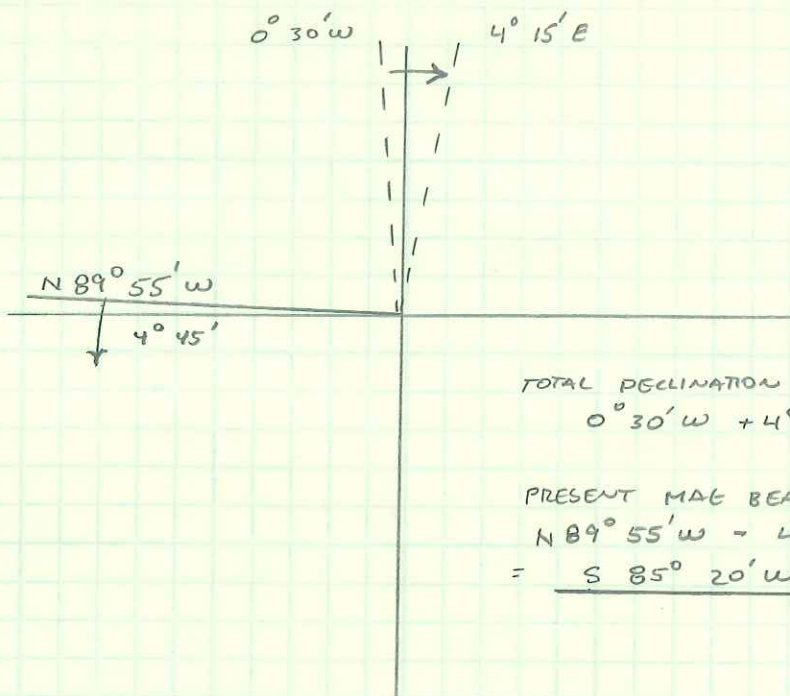 0° 30' W 4° 15' E
N 89° 55' W
4° 45'
TOTAL DECLINATION
0° 30' W + 4°
PRESENT MAG BEA
N 89° 55' W - 4
= S 85° 20' W